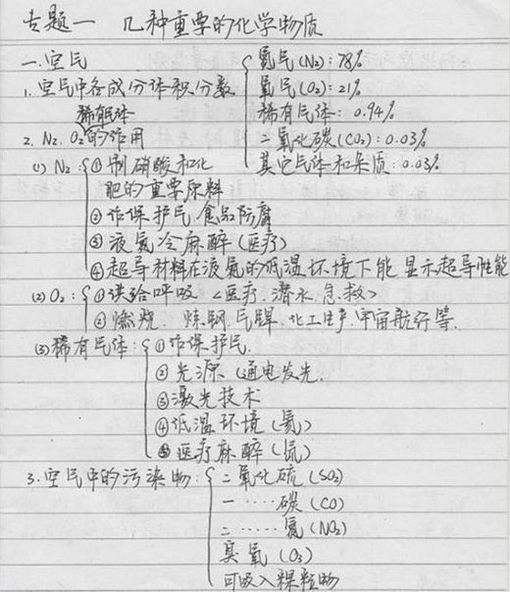 专题一 几种重要的化学物质
一.空气
1.空气中各成分体积分数
氮气(N₂):78%
氧气(O₂):21%
稀有气体:0.94%
二氧化碳(CO₂):0.03%
其它气体和杂质:0.03%
稀有气体
2.N₂.O₂的作用
(1)N₂:①制硝酸和化
肥的重要原料
②作保护气.食品防腐
③液氮冷麻醉(医疗)
④超导材料在液氮的低温环境下能显示超导性能
(2)O₂:①供给呼吸<医疗.潜水.急救>
②燃烧.炼钢.气焊.化工生产.宇宙航行等.
(3)稀有气体:①作保护气.
②光源(通电发光.
③激光技术
④低温环境(氦)
⑤医疗麻醉(氙)
3.空气中的污染物:
二氧化硫(SO₂)
一……碳(CO)
二……氮(NO₂)
臭氧(O₃)
可吸入颗粒物